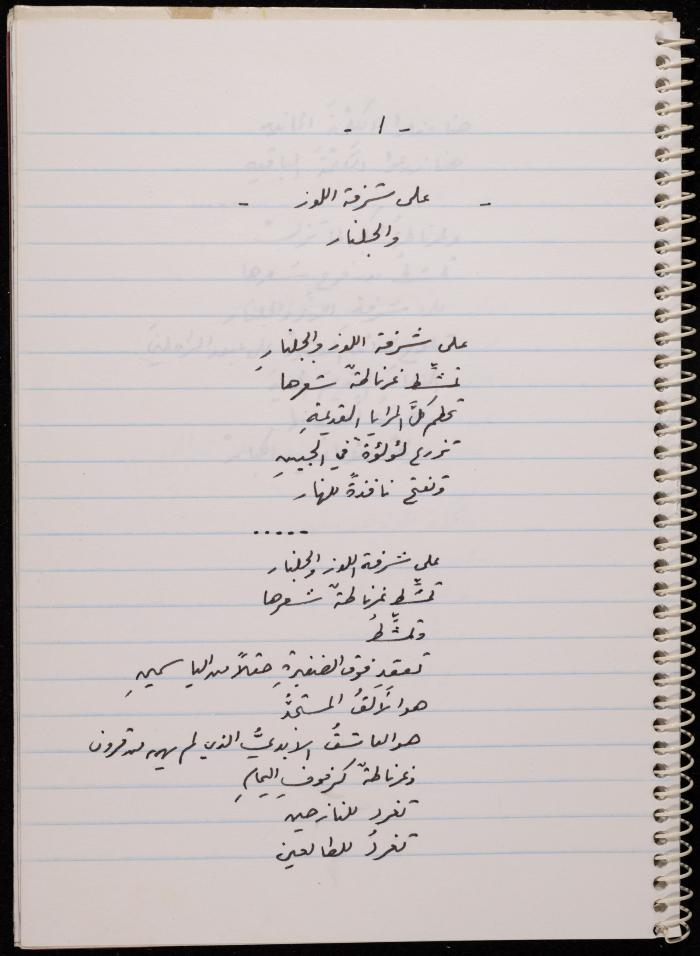 - ١ -
- على شرفة اللوز -
والجلنار
على شرفة اللوز والجلنارِ
تمشِّط غرناطةٌ شعرها
تحطم كلَّ المرايا القديمةِ
تزرع لؤلؤةً في الجبينِ
وتفتح نافذةً للنهار
.....
على شرفة اللوز والجلنار
تمشِّط غرناطةٌ شعرها
وتمشِّطُ
تعقد فوق الضفيرةِ حقلاً من الياسمينِ
هو الألقُ المستحمُّ
هو العاشقُ الأبديُّ الذي لم يهن من قرون
وغرناطةٌ كرفوفِ اليمامِ
تغرد للنازحين
تغردُ للطالعين